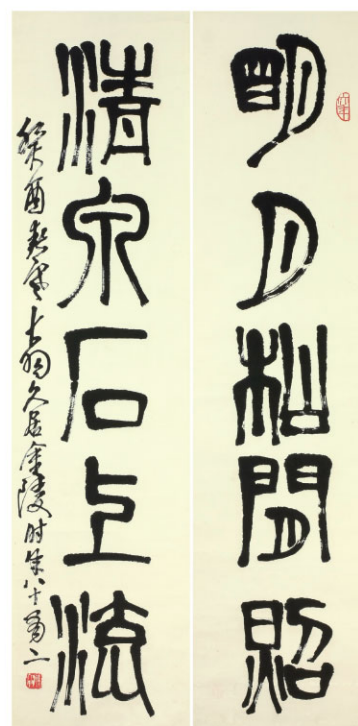 明月松間照
清泉石上流
癸酉春大羽久居金陵时年八十二